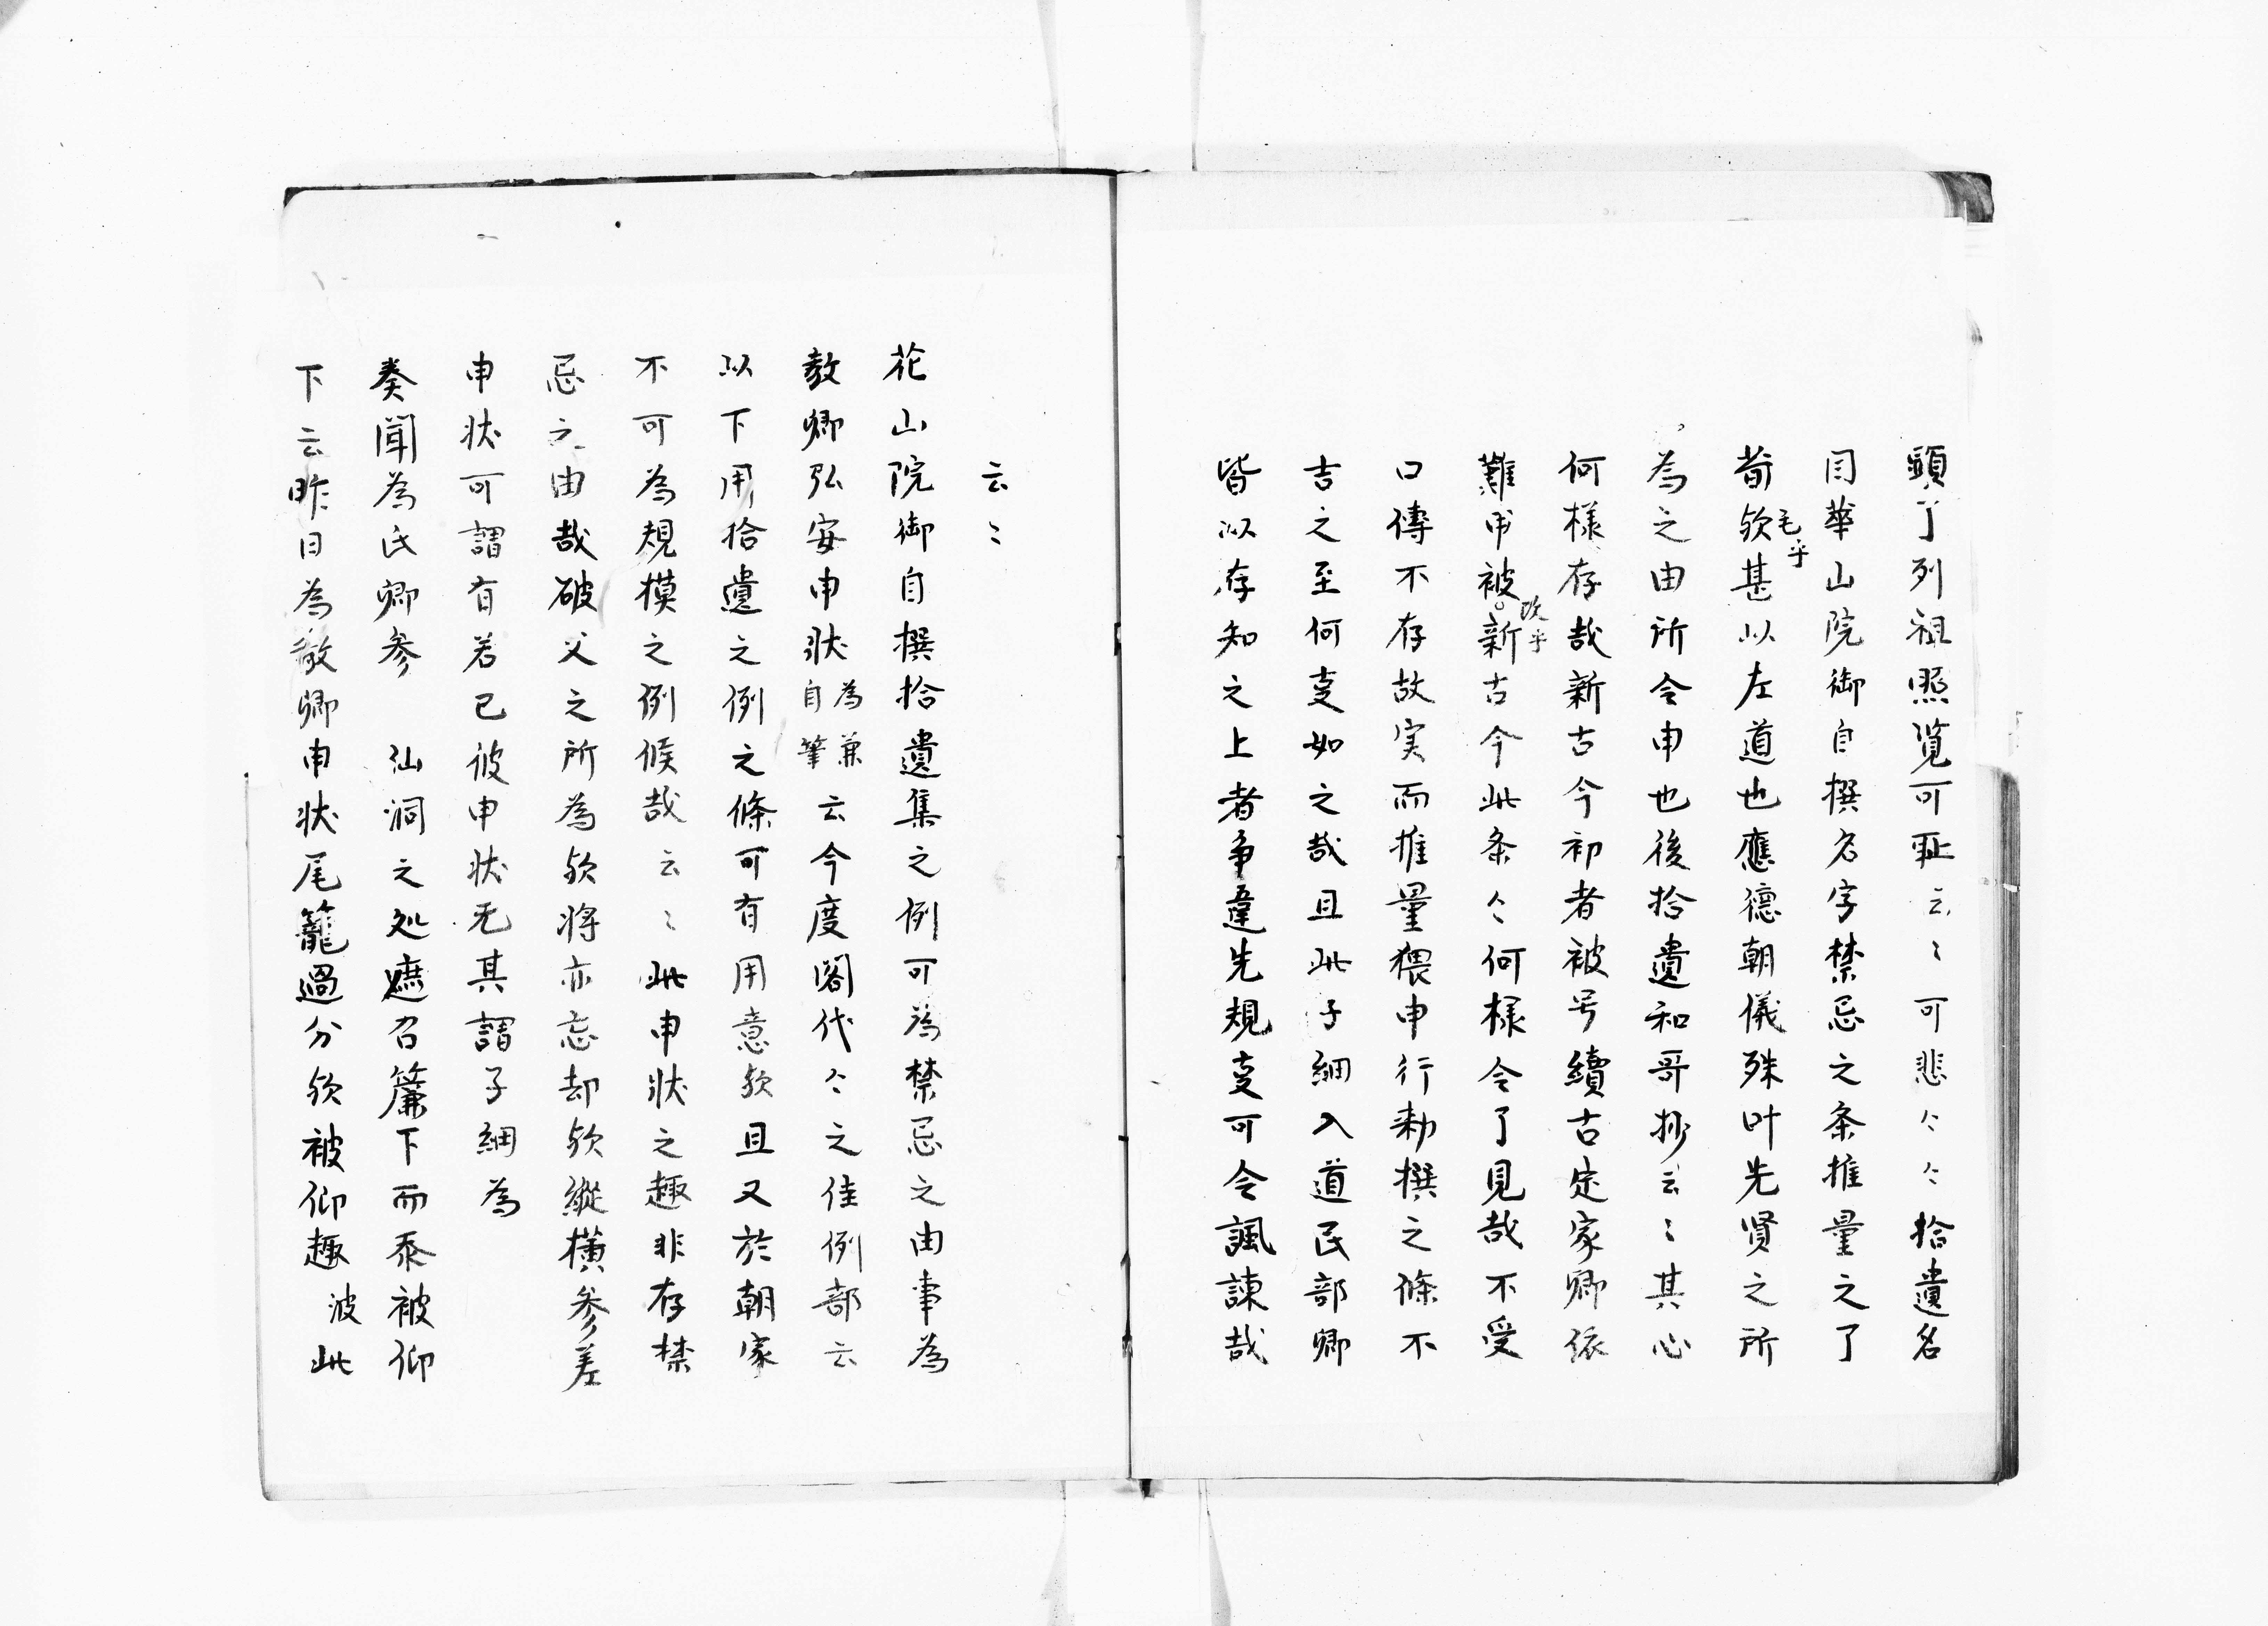 顕了列祖照覧可恥云〻可悲〻〻拾遺名
同華山院御自撰名字禁忌之条推量之了
荀欤甚以左道也應德朝儀殊叶先賢之所
毛乎
為之由所令申也後拾遺和哥抄云〻其心
何樣存哉新古今初者被号續古定家卿依
難申被。新古今此条〻何様令了見哉不受
改乎
口傳不存故実而推量猥申行勅撰之條不
吉之至何事如之哉且此子細入道民部卿
皆以存知之上者争違先規事可令諷諌哉
云〻
花山院御自撰拾遺集之例可為禁忌之由事為
教卿弘安申状為兼自筆云今度閣代〻之佳例部云
以下用拾遺之例之條可有用意欤且又於朝家
不可為規模之例候哉云〻此申状之趣非存禁
忌之由哉破父之所為欤将亦忘却欤縱横参差
申状可謂有若已彼申状无其謂子細為
奏聞為氏卿参 仙洞之処遮召簾下而忝被仰
下云昨日為教卿申状尾籠過分欤被仰趣波此